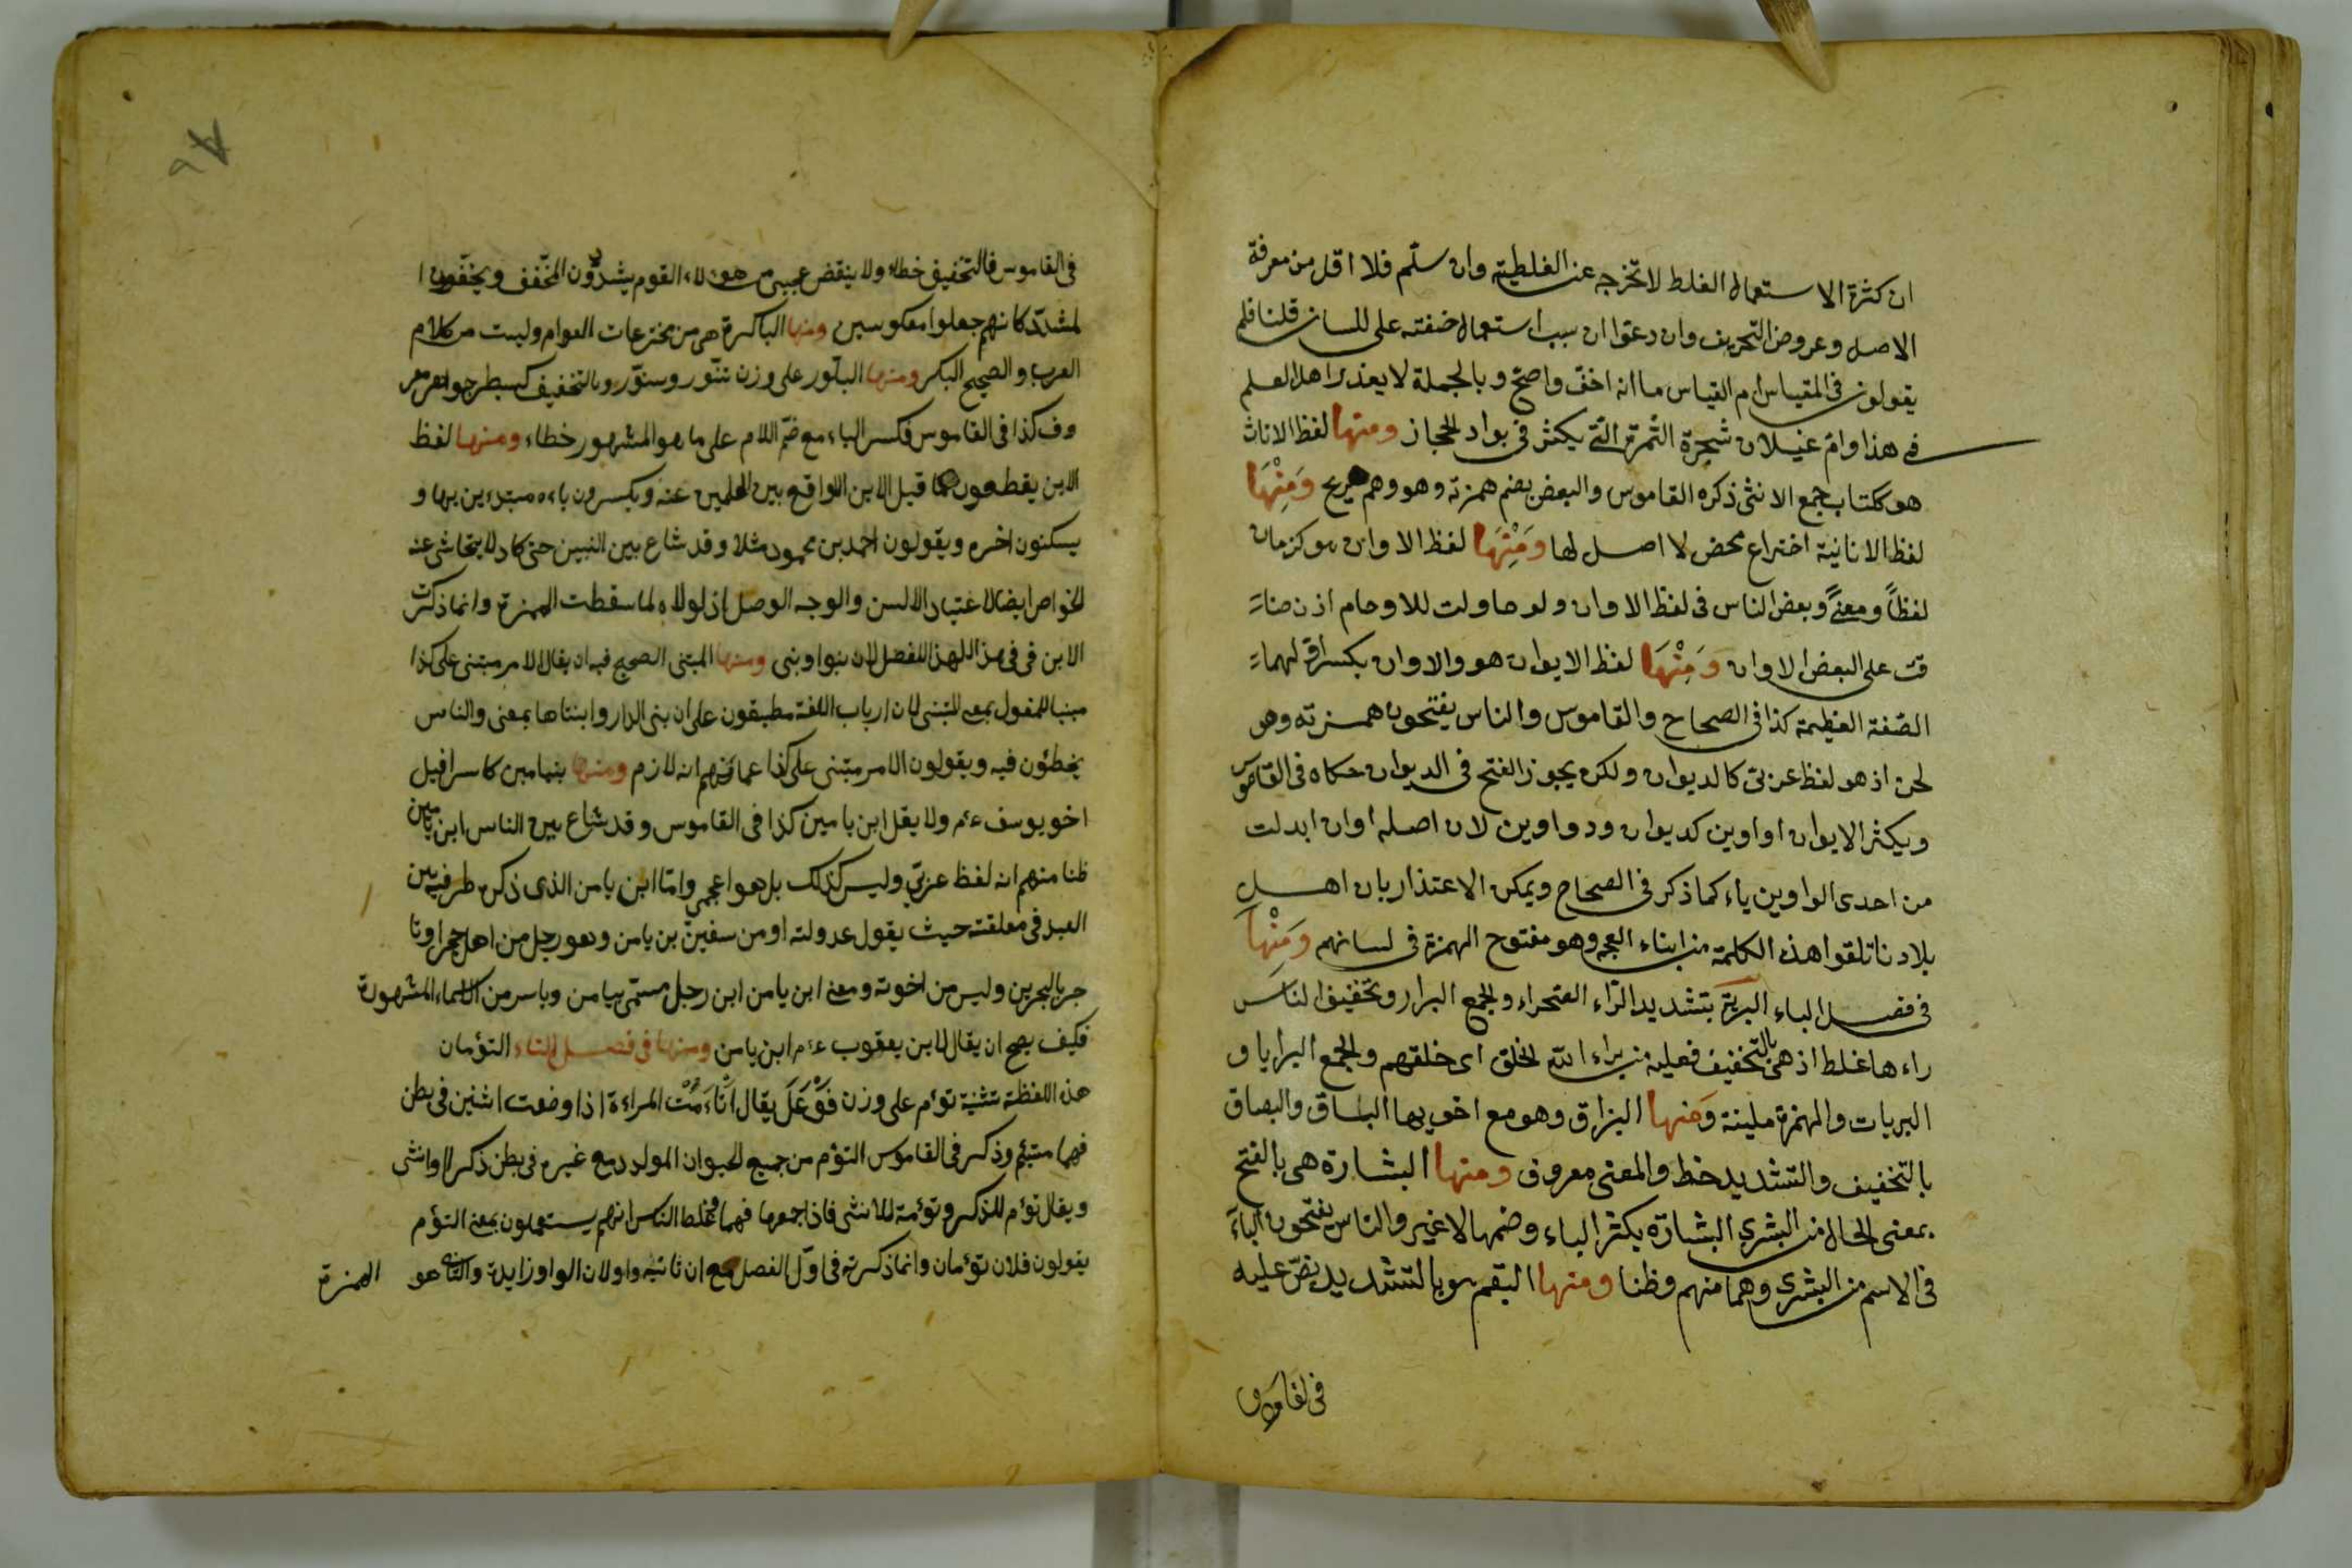 ان كثرة الاستعمال الغلط لا تخرجه عن الغلطية وان سلّم فلا اقل من معرفة
الاصل وعروض التحريف وان دعوا ان سبب استعماله خفته على اللسان قلنا فلم
يقولون في المقياس ام القياس ما انه اخفّ واصحّ وبالجملة لا يعذر اهل العلم
في هذا وامّ غيلان شجرة الثمرة التي يكثر في بواد الحجاز ومنها لفظ الاناث
هو ككتاب جمع الانثى ذكره القاموس والبعض يضم همزته وهو وهم صريح وَمِنْهَا
لفظ الانانية اختراع محض لا اصل لها وَمِنْهَا لفظ الاوان هو كزمان
لفظاً ومعنىً وبعض الناس في لفظ الاوان ولو حاولت للاوحام اذن ضاء
قت على البعض الاوان وَمِنْهَا لفظ الايوان هو والاوان بكسر اوّلهما
الصّفة العظيمة كذا في الصحاح والقاموس والناس يفتحون همزته وهو
لحن اذ هو لفظ عربيّ كالديوان ولكن يجوز الفتح في الديوان حكاه في القاموس
ويكثر الايوان اواوين كديوان ودواوين لان اصله اوان ابدلت
من احدى الواوين ياء كما ذكر في الصحاح ويمكن الاعتذار بان اهل
بلادنا تلقوا هذه الكلمة من ابناء العجم وهو مفتوح الهمزة في لسانهم وَمِنْهَا
في فصل الباء البريّة بتشديد الرّاء الصحراء والجمع البرار وتخفيف الناس
راءها غلط اذ هي بالتخفيف فعيلة من براء الله الخلق اى خلقهم والجمع البرايا و
البريات والهمزة ملينة وَمنها البزاق وهو مع اخويها البساق والبصاق
بالتخفيف والتشديد خط والمعنى معروف ومنها البشارة هي بالفتح
بمعنى الحال من البشرى البشارة بكثر الباء وضمها لا غير والناس يفتحون الباء
في الاسم من البشرى وهما منهم وظنا ومنها البقم هو بالتشديد نصّ عليه
في لقاموس
في القاموس فالتخفيف خطاء ولا ينقض عجبى من هؤلاء القوم يشدّدون المخّفف ويخفّفون ا
لمشدّد كانهم جعلوا معكوسين ومنها الباكرة هي من مخترعات العوام وليست من كلام
العرب والصحيح البكر ومنها البلّور على وزن تنّور وسنّور وبالتخفيف كسبطر جوهر معر
وف كذا في القاموس فكسر الباء مع ضمّ اللام على ما هو المشهور خطاء ومنها لفظ
الابن يقطعون ما قبل الابن الواقع بين العلمين عنه ويكسرون باءه مبتدءين بها و
يسكنون اخره ويقولون احمد بن محمود مثلا وقد شاع بين النبين حتى كاد لا يتحاشى عنه
الخواص ايضا لاعتياد الالسن والوجه الوصل اذ لولاه لما سقطت الهمزة وانما ذكرت
الابن في في هذا اللهذا للفصل لان بنوا وبنى ومنها المبتنى الصحيح فيه ان يقال الامر مبتنى على كذا
مبنيا للمفعول بمعنى المبتنى لان ارباب اللغة مطبقون على ان بنى الدار وابتناها بمعنى والناس
يخطئون فيه ويقولون الامر مبتنى على كذا عما منهم انه لازم ومنها بنيامين كاسرافيل
اخو يوسف ءم ولا يقل ابن يامين كذا في القاموس وقد شاع بين الناس ابن يامين
ظنا منهم انه لفظ عربيّ وليس كذلك بل هو اعجمى وامّا ابن يامن الذى ذكره طرفة بن
العبد في معلقته حيث يقول عدولته او من سفين بن يامن وهو رجل من اهل حجر او تا
جر بالبحرين وليس من اخوته ومعنى ابن يامن ابن رجل مسمّى بيامن وياسر من الاسماء المشهورة
فكيف يصح ان يقال لابن يعقوب ءم ابن يامن ومنها في فصل التاء التؤمان
هذه اللفظة تثنية توءم على وزن فَوْعَلَ يقال اتاءَمَت المراءة اذا وضعت اثنين في بطن
فهما متئم وذكر في القاموس التؤم من جميع الحيوان المولود مع غيره في بطن ذكرا او انثى
ويقال توءم للذكر وتوءمة للانثى فاذا جمعها فهما فخلط الناس انهم يستعملون بمعنى التؤم
يقولون فلان تؤمان وانما ذكرته في اوّل الفصل مع ان ثانيه واو لان الواو زايدة والتاء هو
الهمزة